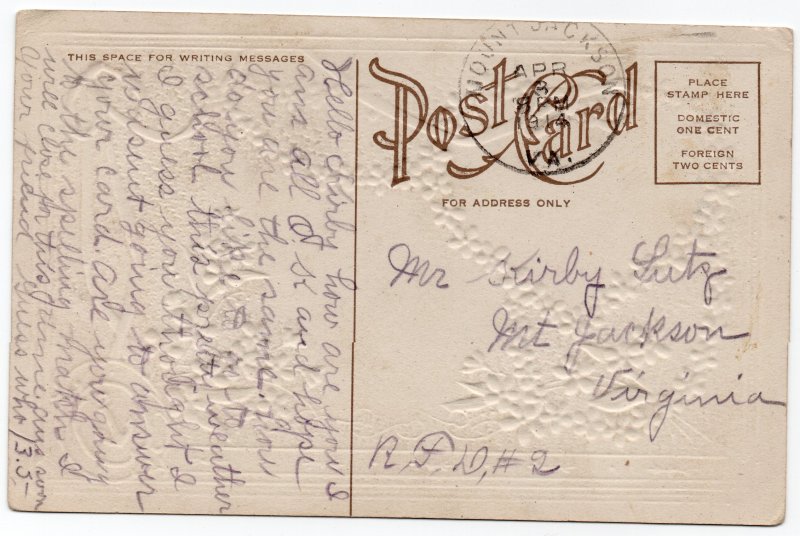 THIS SPACE FOR WRITING MESSAGES
Hello Kirby how are you I
am all O K and hope
you are the same. How
do you like to go to
school this pretty weather
I guess you thought I
wasn't going to answer
your card are you going
to the spelling match I
will close for this time ans soon
your friend Guess who / 3.5-
Post Card
MOUNT JACKSON
APR
8
PM
1914
VA.
PLACE
STAMP HERE
DOMESTIC
ONE CENT
FOREIGN
TWO CENTS
FOR ADDRESS ONLY
Mr Kirby Lutz
Mt Jackson
Virginia
R. F. D, #2